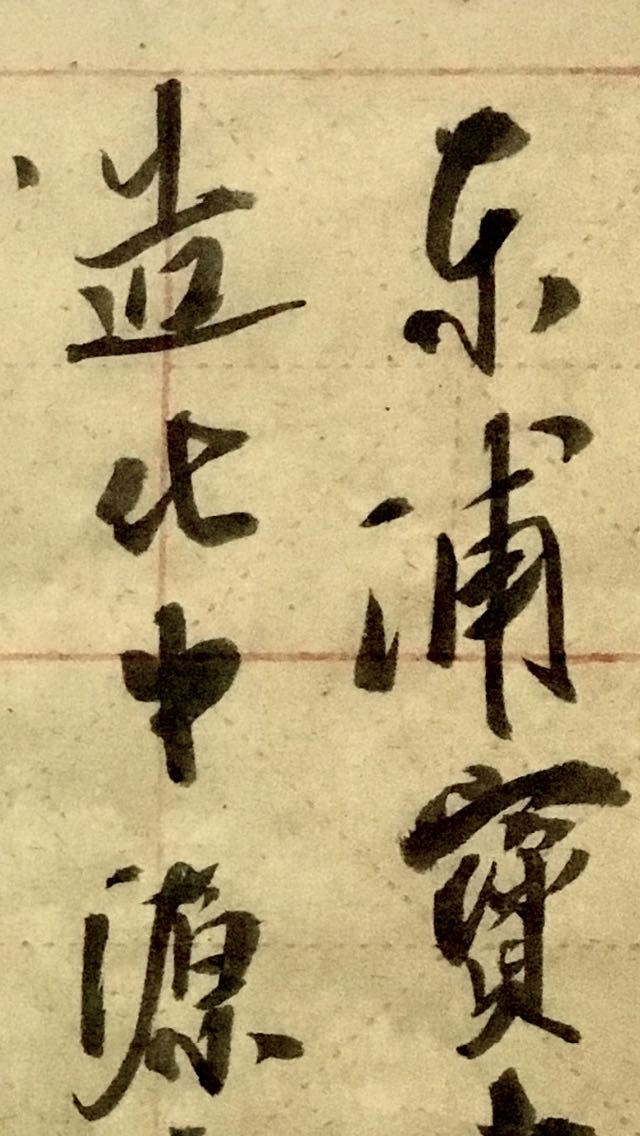 东浦寶
造化中源